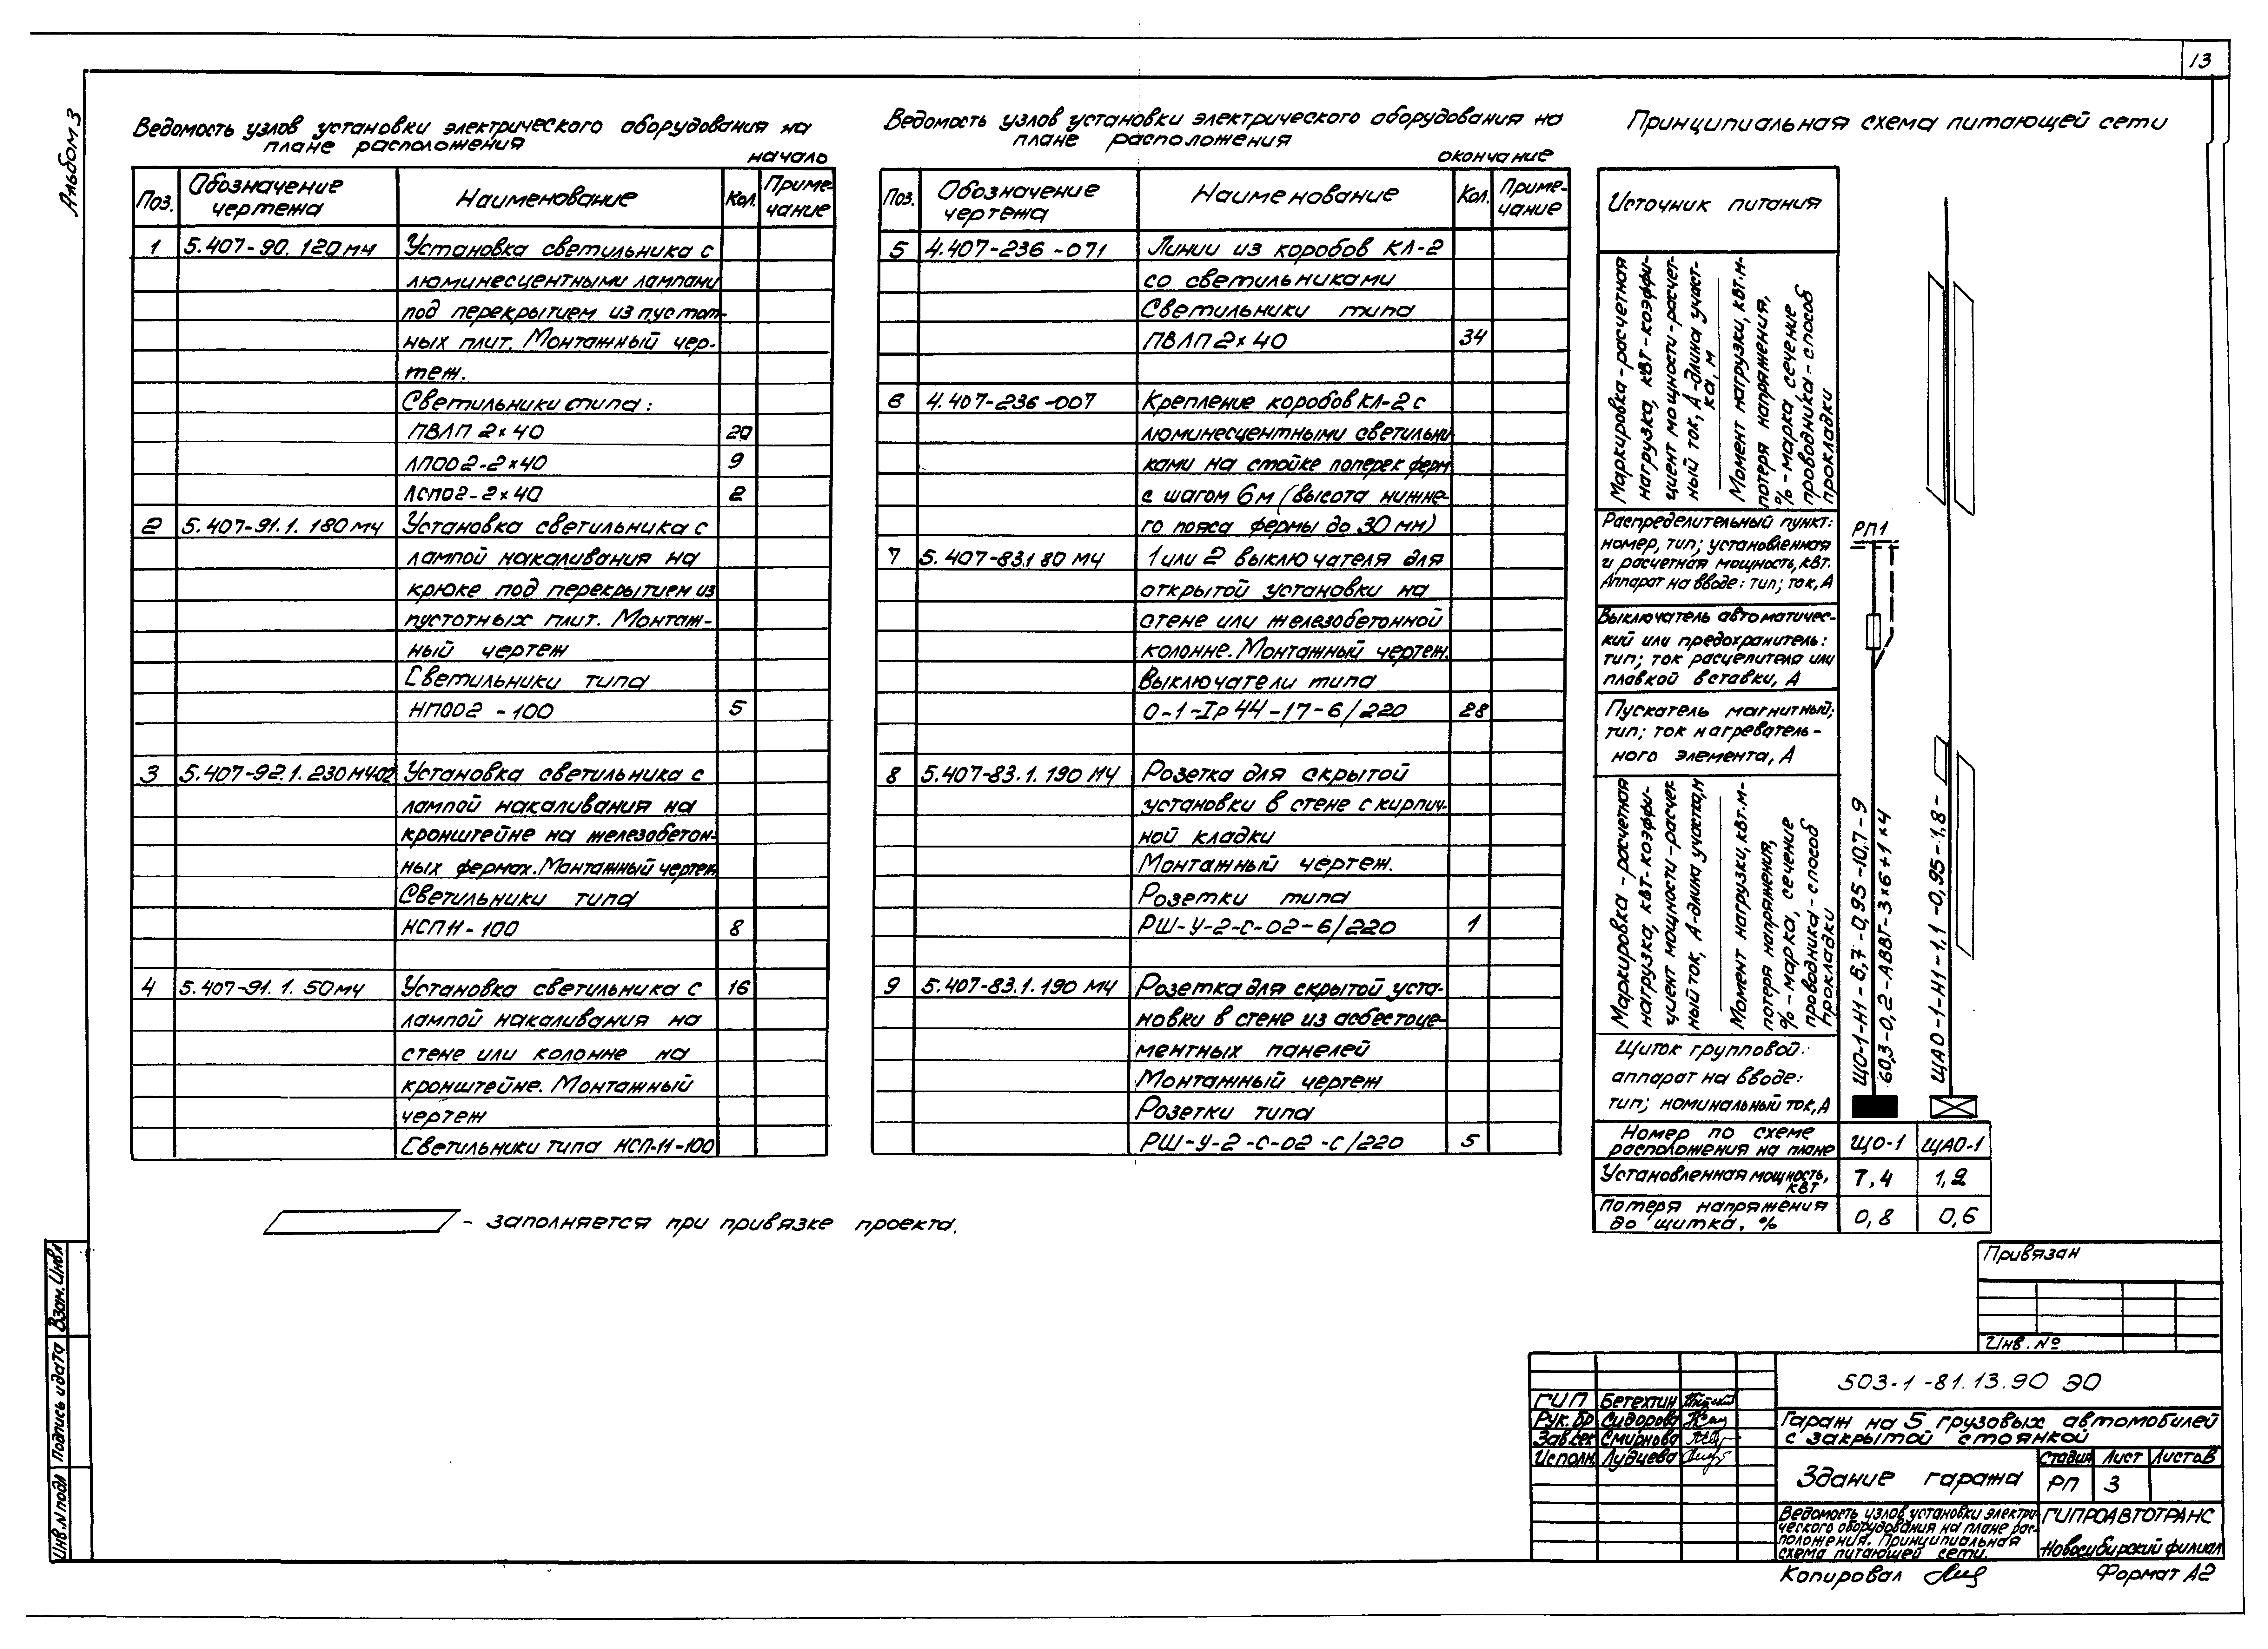 13
Альбом 3
Ведомость узлов установки электрического оборудования на
плане расположения
начало
Поз. Обозначение чертежа Наименование Кол. Приме-
чание
1 5.407-90.120мч Установка светильника с
люминесцентными лампами
под перекрытием из пустот-
ных плит. Монтажный чер-
теж.
Светильники типа:
ПВЛП 2×40 20
ЛПО02-2×40 9
ЛСП02-2×40 2
2 5.407-91.1.180мч Установка светильника с
лампой накаливания на
крюке под перекрытием из
пустотных плит. Монтаж-
ный чертеж
Светильники типа
НПО02-100 5
3 5.407-92.1.230мч-02 Установка светильника с
лампой накаливания на
кронштейне на железобетон-
ных фермах. Монтажный чертеж
Светильники типа
НСП11-100 8
4 5.407-91.1.50мч Установка светильника с 16
лампой накаливания на
стене или колонне на
кронштейне. Монтажный
чертеж
Светильники типа НСП-11-100
Ведомость узлов установки электрического оборудования на
плане расположения
окончание
Поз. Обозначение чертежа Наименование Кол. Приме-
чание
5 4.407-236-071 Линии из коробов КЛ-2
со светильниками
Светильники типа
ПВЛП 2×40 34
6 4.407-236-007 Крепление коробов КЛ-2 с
люминесцентными светильни-
ками на стойке поперек ферм
с шагом 6м (высота нижне-
го пояса фермы до 30 мм)
7 5.407-83.1 80 мч 1 или 2 выключателя для
открытой установки на
стене или железобетонной
колонне. Монтажный чертеж.
Выключатели типа
0-1-Iр44-17-6/220 28
8 5.407-83.1.190 мч Розетка для скрытой
установки в стене с кирпич-
ной кладки
Монтажный чертеж.
Розетки типа
РШ-У-2-С-02-6/220 1
9 5.407-83.1.190 мч Розетка для скрытой уста-
новки в стене из асбестоце-
ментных панелей
Монтажный чертеж
Розетки типа
РШ-У-2-С-02-С/220 5
- заполняется при привязке проекта.
Принципиальная схема питающей сети
Источник питания
Маркировка-расчетная
нагрузка, кВт-коэффи-
циент мощности-расчет-
ный ток, А-длина участ-
ка, м
Момент нагрузки, кВт.м-
потеря напряжения,
%-марка, сечение
проводника-способ
прокладки
Распределительный пункт:
номер, тип; установленная
и расчетная мощность, кВт.
Аппарат на вводе: тип; ток, А
РП1
Выключатель автоматичес-
кий или предохранитель:
тип; ток расцепителя или
плавкой вставки, А
Пускатель магнитный;
тип; ток нагреватель-
ного элемента, А
Маркировка-расчетная
нагрузка, кВт-коэффи-
циент мощности-расчет-
ный ток, А-длина участка, м
Момент нагрузки, кВт.м-
потеря напряжения,
%-марка, сечение
проводника-способ
прокладки
ЩО-1-Н1-6,7-0,95-10,7-9
60,3-0,2-АВВГ-3×6+1×4
ЩАО-1-Н1-1,1-0,95-1,8-
Щиток групповой:
аппарат на вводе:
тип; номинальный ток, А
Номер по схеме
расположения на плане ЩО-1 ЩАО-1
Установленная мощность,
кВт 7,4 1,2
Потеря напряжения
до щитка, % 0,8 0,6
Привязан
Инв. №
503-1-81.13.90 ЭО
ГИП Бетехтин
Рук.бр Сидорова
Зав.сек Смирнова
Исполн. Лудцева
Гараж на 5 грузовых автомобилей
с закрытой стоянкой
Здание гаража
Стадия Лист Листов
РП 3
Ведомость узлов установки электри-
ческого оборудования на плане рас-
положения. Принципиальная
схема питающей сети.
ГИПРОАВТОТРАНС
Новосибирский филиал
Копировал
Формат А2
Взам. Инв.
Подпись и дата
Инв. N подл